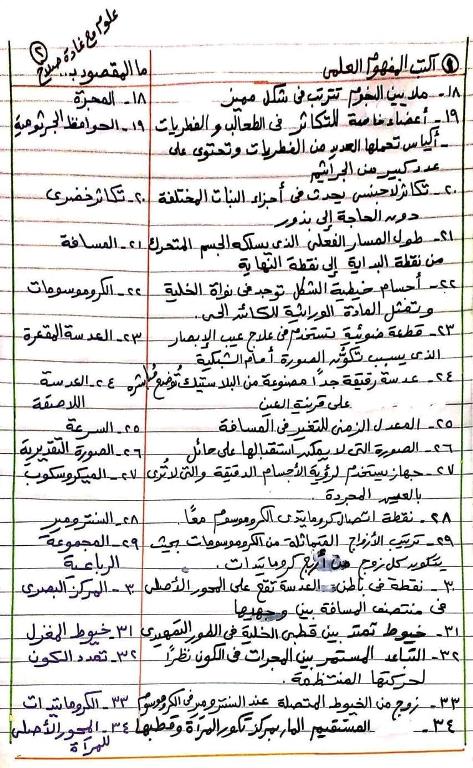 علوم مع غادة صلاح
(٢)
ما المقصود بـ...
① اكتب المفهوم العلمى
١٨- ملايين النجوم تترتب فى شكل مميز
١٨- المجرة
١٩- أعضاء خاصة للتكاثر فى الطحالب والفطريات
١٩- الحوافظ الجرثومية
- أكياس تحملها العديد من الفطريات وتحتوى على
عدد كبير من الجراثيم
٢٠- تكاثر لاجنسى يحدث فى أجزاء النبات المختلفة
٢٠- تكاثر خضرى
دون الحاجة إلى بذور
٢١- طول المسار الفعلى الذى يسلكه الجسم المتحرك
٢١- المسافة
من نقطة البداية إلى نقطة النهاية
٢٢- أجسام خيطية الشكل توجد فى نواة الخلية
٢٢- الكروموسومات
وتمثل المادة الوراثية للكائن الحى.
٢٣- قطعة ضوئية تستخدم فى علاج عيب الإبصار
٢٣- العدسة المقعرة
الذى يسبب تكوُّن الصورة أمام الشبكية
٢٤- عدسة رقيقة جداً مصنوعة من البلاستيك تُوضع مباشرة
٢٤- العدسة
على قرنية العين
اللاصقة
٢٥- المعدل الزمنى للتغير فى المسافة
٢٥- السرعة
٢٦- الصورة التى لا يمكن استقبالها على حائل
٢٦- الصورة التقديرية
٢٧- جهاز يستخدم لرؤية الأجسام الدقيقة والتى لا تُرى
٢٧- الميكروسكوب
بالعين المجردة.
٢٨- نقطة اتصال كروماتيدى الكروموسوم معًا.
٢٨- السنترومير
٢٩- ترتيب الأزواج المتماثلة من الكروموسومات بحيث
٢٩- المجموعة
يتكون كل زوج من أربع كروماتيدات.
الرباعية
٣٠- نقطة فى باطن العدسة تقع على المحور الأصلى
٣٠- المركز البصرى
فى منتصف المسافة بين وجهيها
٣١- خيوط تمتد بين قطبى الخلية فى الطور التمهيدى
٣١- خيوط المغزل
٣٢- التباعد المستمر بين المجرات فى الكون نظرًا
٣٢- تمدد الكون
لحركتها المنتظمة.
٣٣- زوج من الخيوط المتصلة عند السنترومير فى الكروموسوم
٣٣- الكروماتيدات
٣٤- المستقيم المار بمركز تكور المرآة وقطبها
٣٤- المحور الأصلى
للمرآة